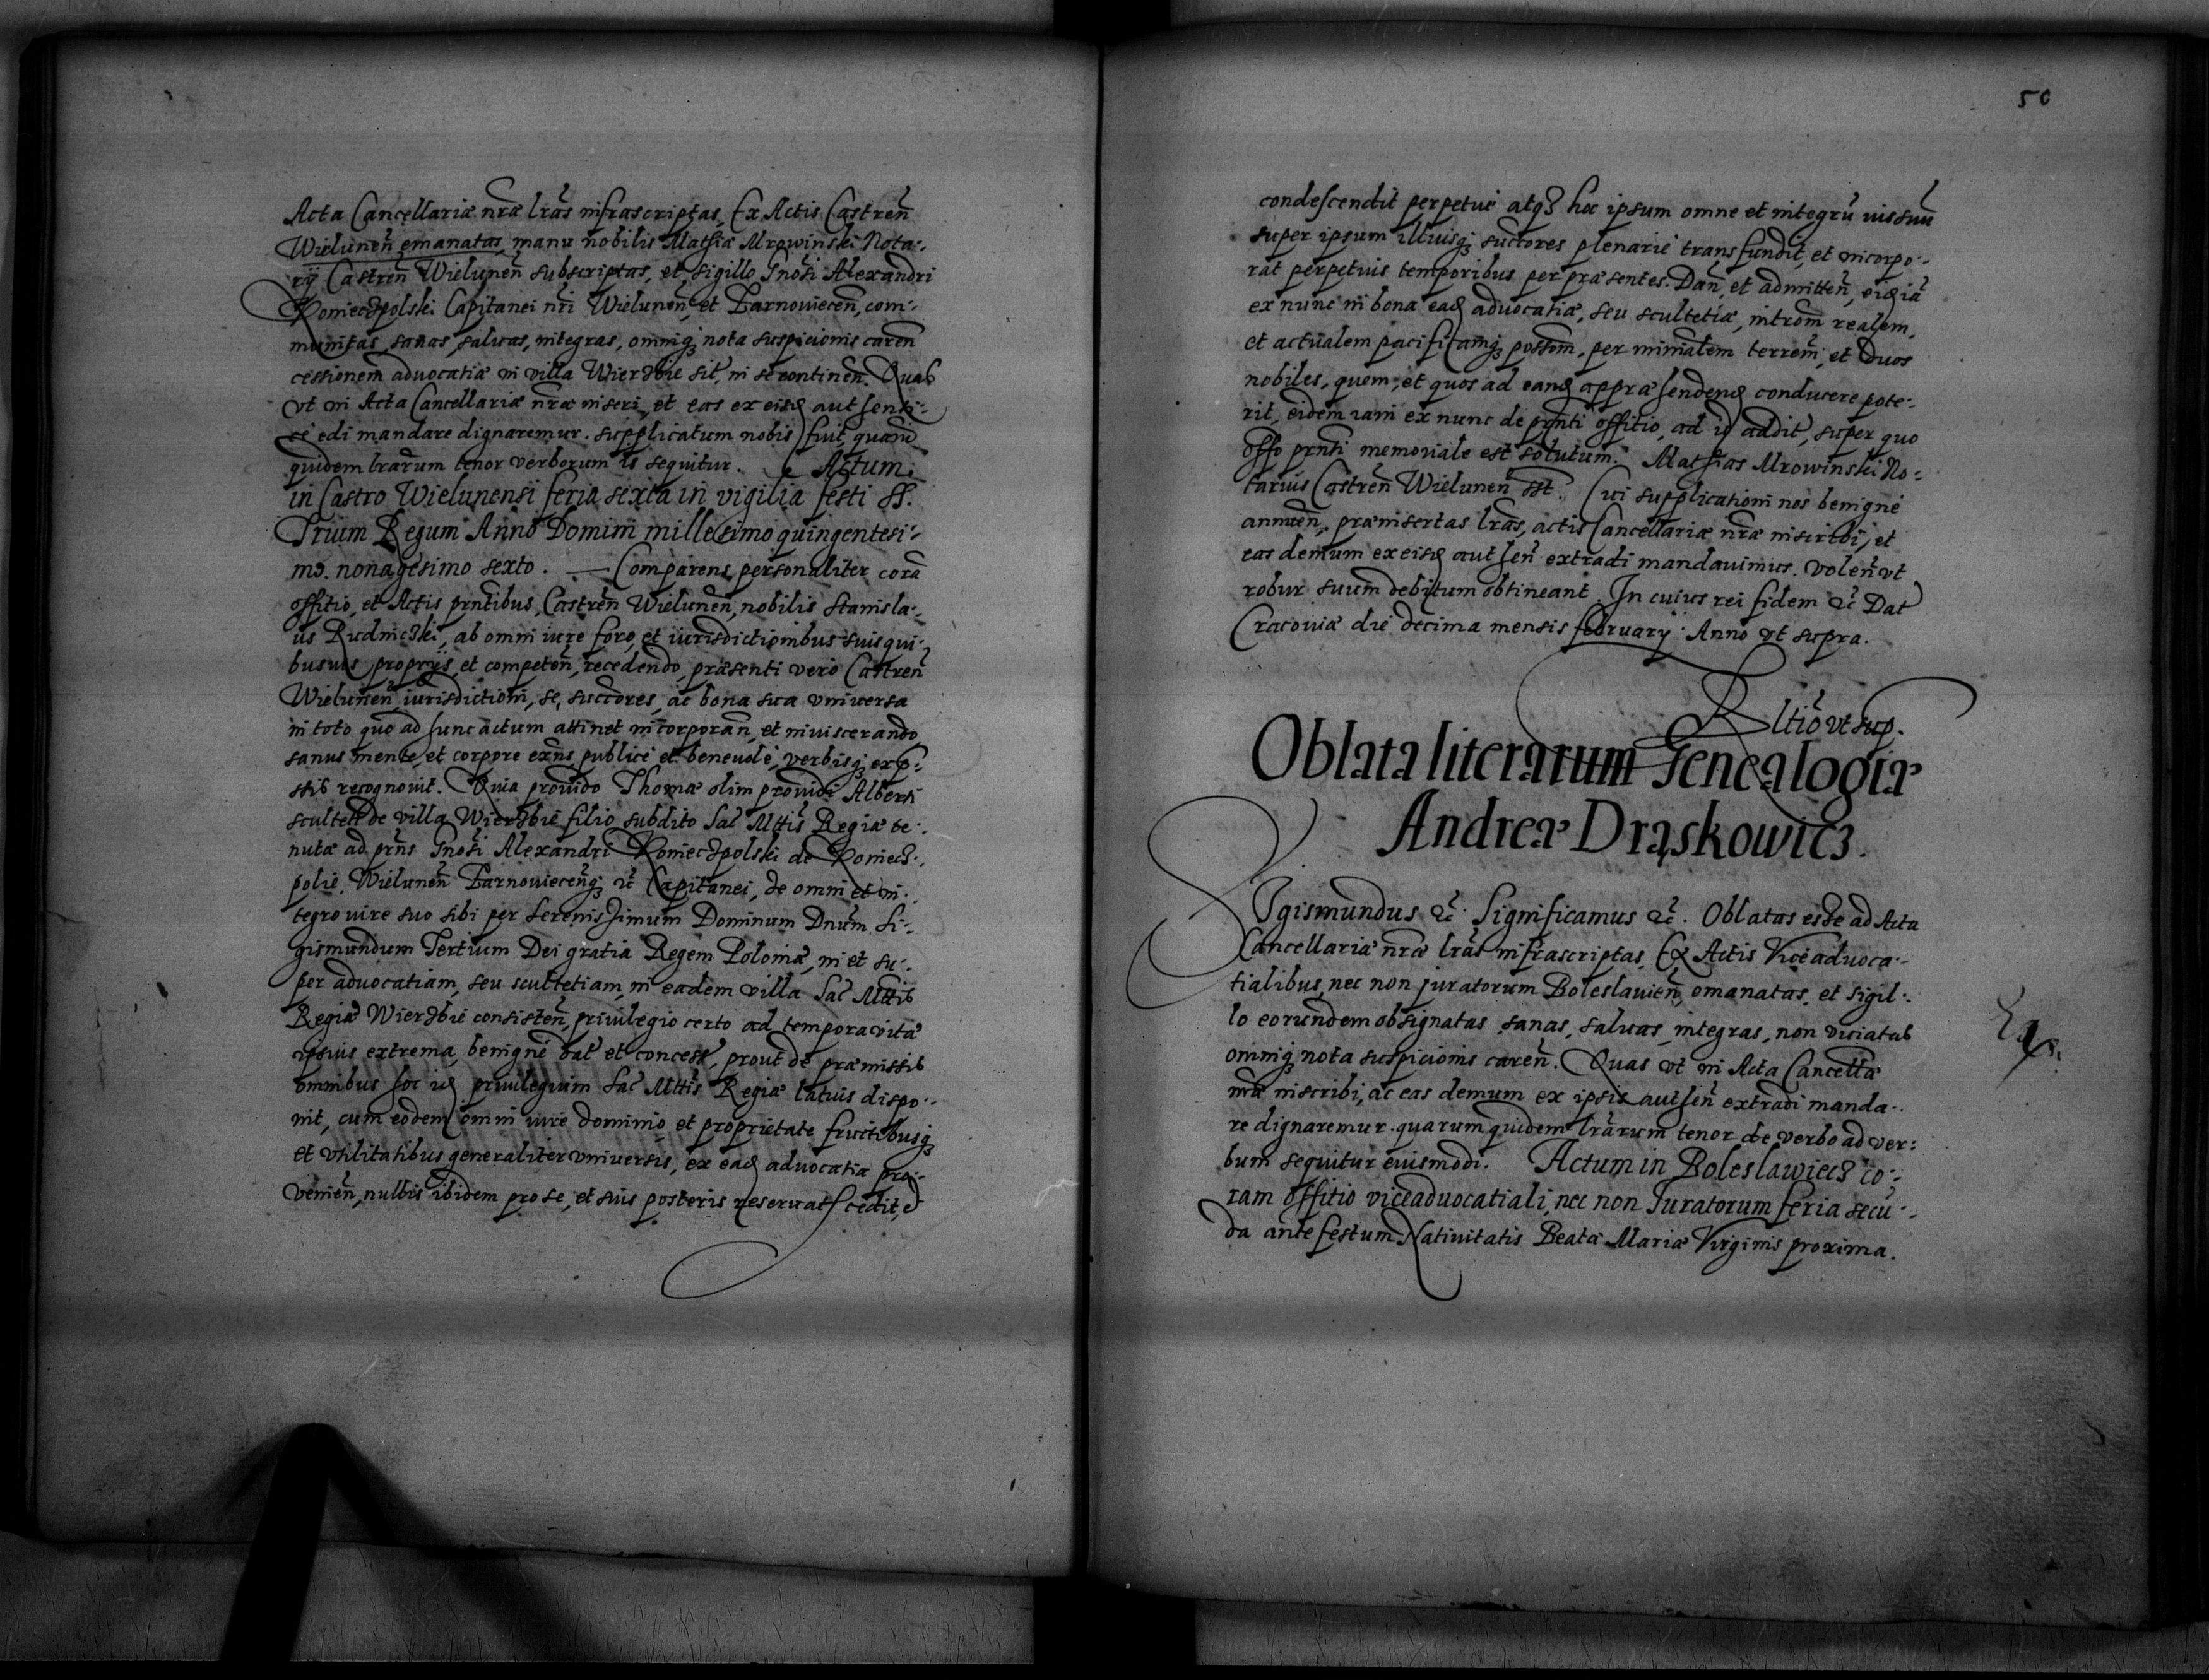 Acta Cancellariæ nræ lrãs infrascriptas, Ex Actis Castreñ
Wieluneñ emanatas, manu nobilis Mathiæ Mrowinski Nota-
rij Castreñ Wieluneñ subscriptas, et sigillo Gnosi Alexandri
Konieczpolski Capitanei nri Wieluneñ, et Tarnowieceñ, com-
munitas, sanas, saluas, integras, omniq; nota suspicionis careñ
cessionem aduocatiæ in villa Wierzbie sit, in se continen. Quas
vt in Acta Cancellariæ nræ inseri, et eas ex eisd authenti-
cè edi mandare dignaremur. supplicatum nobis fuit, quarũ
quidem lrarum tenor verborum is sequitur. Actum
in Castro Wielunensi feria sexta in vigilia festi SS.
Trium Regum Anno Domini millesimo quingentesi-
mo. nonagesimo sexto. — Comparens personaliter corã
offitio, et Actis pñtibus Castreñ Wieluneñ, nobilis Stanisla-
us Rudniczki, ab omni iure foro, et iurisdictionibus suis qui-
busuis proprijs, et competeñ, recedendo, præsenti vero Castreñ
Wieluneñ iurisdictioni, se, succores, ac bona sua vniuersa
in toto quo ad hunc actum attinet incorporañ, et inuiscerando
sanus mente, et corpore exns, publicè et beneuolè, verbisq; exp-
ssis recognouit. Quia prouido Thomæ olim prouidi Alberti
sculteti de villa Wierzbie filio subdito Sac Mttis Regiæ te-
nutæ ad prñs Gnosi Alexandri Konieczpolski de Koniecz-
polie, Wieluneñ Tarnowieceñq; &c Capitanei, de omni et in-
tegro iure suo sibi per Serenissimum Dominum Dnum Si-
gismundum Tertium Dei gratia Regem Poloniæ, in et su-
per aduocatiam, seu scultetiam, in eadem villa Sac Mttis
Regiæ Wierzbie consisteñ, priuilegio certo ad tempora vitæ
ipsius extrema, benignè dat et concess, prout de præmissis
omnibus hoc id priuilegium Sac Mttis Regiæ latius dispo-
nit, cum eodem omni iure dominio, et proprietate fructibusq;
et vtilitatibus generaliter vniuersis, ex ead aduocatia pro-
venieñ, nullis ibidem pro se, et suis posteris reseruat, cedit, et
50
condescendit perpetuè atq; hoc ipsum omne et integrũ ius suũ
super ipsum illiusq; succores plenariè transfundit, et incorpo-
rat perpetuis temporibus per præsentes. Dañ, et admitteñ, eid iã
ex nunc in bona ead aduocatiæ, seu scultetiæ, introm realem,
et actualem pacificamq; possom, per minralem terrem, et duos
nobiles, quem, et quos ad eand appræhendend conducere pote-
rit, eidem iam ex nunc de prñti offitio, ad id addit, super quo
offo prñti memoriale est solutum. Mathias Mrowinski No-
tarius Castreñ Wieluneñ sst. Cui supplicationi nos benignè
annueñ, præinsertas lrãs, actis Cancellariæ nræ inscribi, et
eas demum ex eisd autheñ extradi mandauimus. Voleñ vt
robur suum debitum obtineant. In cuius rei fidem &c Dat
Cracouiæ die decima mensis february Anno vt supra.
Rltiõ vt sup.
Oblata literarum Genealogiæ
Andreæ Drąskowicz.
Sigismundus &c. Significamus &c. Oblatas esse ad Acta
Cancellariæ nræ lrãs infrascriptas, Ex Actis Viceaduoca-
tialibus, nec non juratorum Boleslauieñ, emanatas, et sigil-
lo eorundem obsignatas, sanas, saluas, integras, non viciatas
omniq; nota suspicionis careñ. Quas vt in Acta Cancellæ
nræ inscribi, ac eas demum ex ipsis autheñ extradi manda-
re dignaremur. quarum quidem lrãrum tenor de verbo ad ver-
bum sequitur eiusmodi. Actum in Boleslawiecz co-
ram offitio viceaduocatiali, nec non Juratorum feria secũ-
da ante festum Natiuitatis Beatæ Mariæ Virginis proxima.